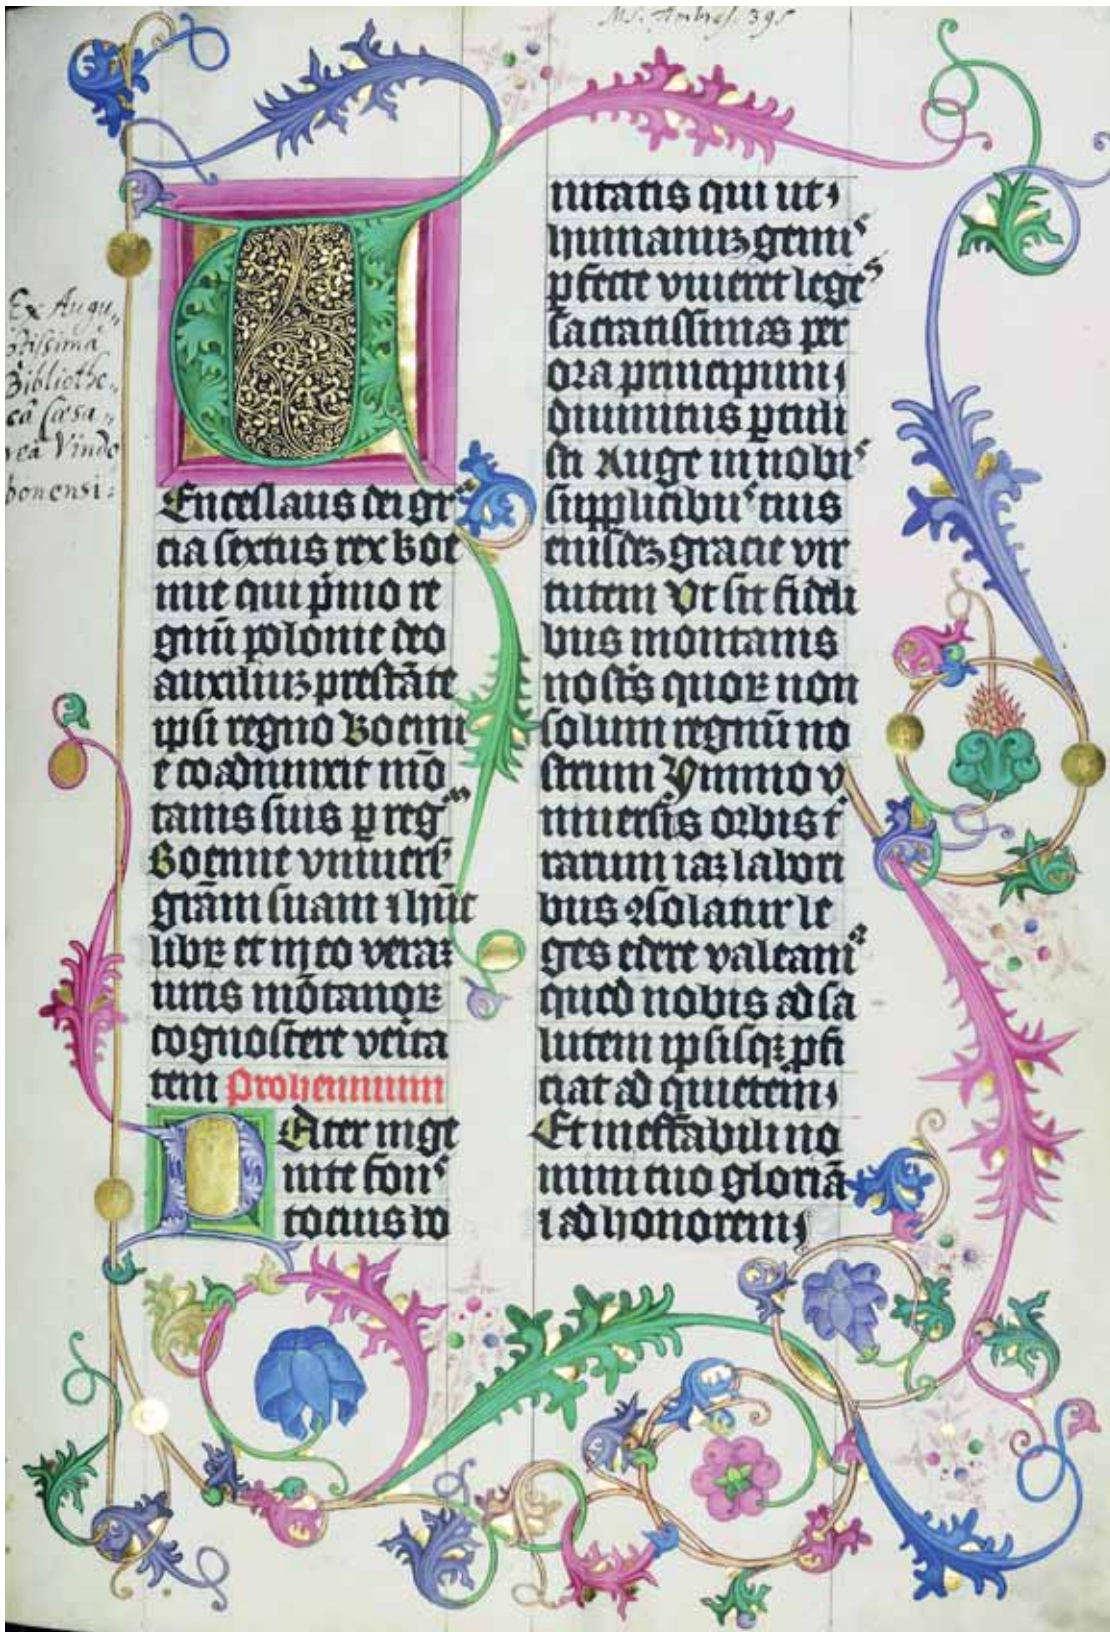 Ms. Ambras. 395
Ex Augu„
stissima
Bibliothe„
câ Cæsa„
reâ Vindo
bonensi:
Enceslaus dei gr̄a
cia sextus rex boe
mie qui p̄mo re
gnū polonie deo
auxiliuꝫ prestāte
ipsi regno Boemi
e coadiunxit mō
tanis suis ꝑ reg
Boemie vniuers
grām suam ⁊ hūc
librꝝ et in eo veraꝫ
iuris mōtanoꝝ
cognoscere verita
tem Prohemium
Ater inge
nite fons
tocius bo
nitatis qui ut
humanuꝫ genus
ꝑfecte viueret leges
sacratissimas per
ora principum
diuinitus ꝑtuli
sti Auge in nobis
supplicibus tuis
eiusdeꝫ gracie vir
tutem Vt sit fideli
bus montanis
nostris quoꝝ non
solum regnū no
strum Ymmo v
niuersis orbis t
rarum iaꝫ labori
bus ꝯsolatur le
ges edere valeam
quod nobis ad sa
lutem ipsisqꝫ ꝓfi
ciat ad quietem
Et ineffabili no
mini tuo gloriā
⁊ ad honorem